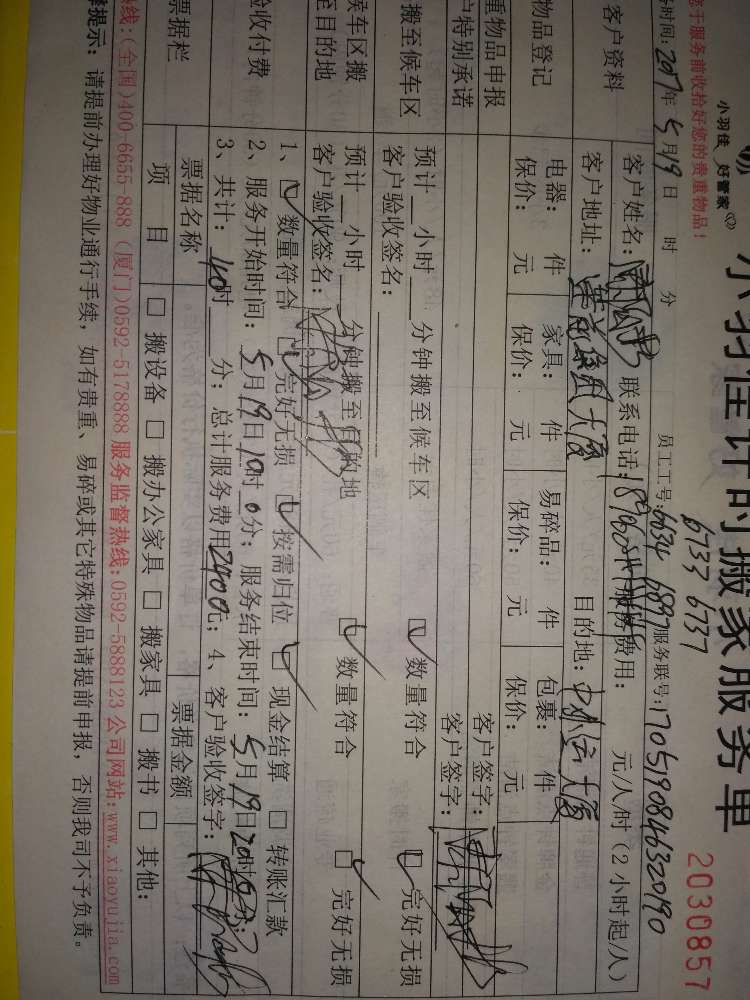 小羽佳 好管家
小羽佳计时搬家服务单
2030857
您于服务前收拾好您的贵重物品！
6733 6737
务时间：2017年5月19日 时 分 员工工号：6634 6897 服务联号：170519084632090
客户资料
客户姓名： 联系电话： 服务费用： 元/人/时（2小时起/人）
客户地址： 大厦 目的地： 大厦
物品登记
电器： 件 家具： 件 易碎品： 件 包裹： 件
保价： 元 保价： 元 保价： 元 保价： 元
重物品申报 客户签字：
户特别承诺 客户签字：
搬至候车区
预计 小时 分钟搬至候车区 数量符合 完好无损
客户验收签名：
候车区搬
至目的地
预计 小时 分钟搬至目的地 数量符合 完好无损
客户验收签名：
验收付费
1、 数量符合 完好无损 按需归位 现金结算 转账汇款
2、服务开始时间：5月19日10时0分；服务结束时间：5月19日20时0分；
3、共计：40时 分；总计服务费用2400元；4、客户验收签字：
票据栏
票据名称 票据金额
项 目 搬设备 搬办公家具 搬家具 搬书 其他：
热线：(全国)400-6655-888 (厦门)0592-5178888 服务监督热线：0592-5888123 公司网站：www.xiaoyujia.com
馨提示：请提前办理好物业通行手续，如有贵重、易碎或其它特殊物品请提前申报，否则我司不予负责。